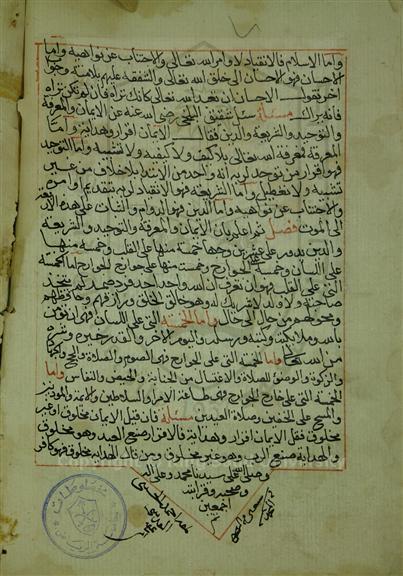 واما الاسلام فالانقياد لاوامر الله تعالى والاجتناب عن نواهيه واما
الاحسان فهو الاحسان الى خلق الله تعالى والشفقة عليهم بلا منة وجوب
اخر نقول الاحسان ان تعبد الله تعالى كانك تراه فان لم تكن تراه
فانه يراك مسئلة سئل شقيق البلخي رضي الله عنه عن الايمان والمعرفة
والتوحيد والشريعة والدين فقال الايمان اقرار وهداية واما
المعرفة فمعرفة الله تعالى بلا كيف ولا كيفية ولا تشبيه واما التوحيد
فهو اقرار من توحد لربه انه واحد من الابتداء بلا خلاف من غير
تشبيه ولا تعطيل واما الشريعة فهو الانقياد لربه بتقديم اوامره
والاجتناب عن نواهيه واما الدين فهو الدوام والثبات على هذه الاربعة
الى الموت فصل ثم اعلم بان الايمان والمعرفة والتوحيد والشريعة
والدين يدور على عشرين وجها خمسة منها على القلب وخمسة منها
على اللسان وخمسة على الجوارح وخمسة منها على خارج الجوارح اما الخمسة
التي على القلب فهو ان تعرف ان الله واحد احد فرد صمد لم يتخذ
صاحبة ولا ولدا لا شريك له وهو خالق الخلائق ورازقهم وحافظهم
ومحولهم من حال الى حال واما الخمسة التي على اللسان فهو ان تؤمن
بالله وملائكته وكتبه ورسله واليوم الاخر والقدر خيره وشره
من الله تعالى واما الخمسة التي على الجوارح فهو الصوم والصلاة والحج
والزكوة والوضوء للصلاة والاغتسال من الجنابة والحيض والنفاس واما
الخمسة التي على خارج الجوارح فهو طاعة الامراء والسلاطين والائمة والمؤذنين
والمسح على الخفين وصلاة العيدين مسئلة فان قيل الايمان مخلوق او غير
مخلوق فقل الايمان اقرار وهداية فالاقرار صنع العبد وهو مخلوق
والهداية صنع الرب وهو غير مخلوق ومن قال الهداية مخلوق فهو كافر
وصلى الله على سيدنا محمد وعلى اله
وصحبه
اجمعين
تم